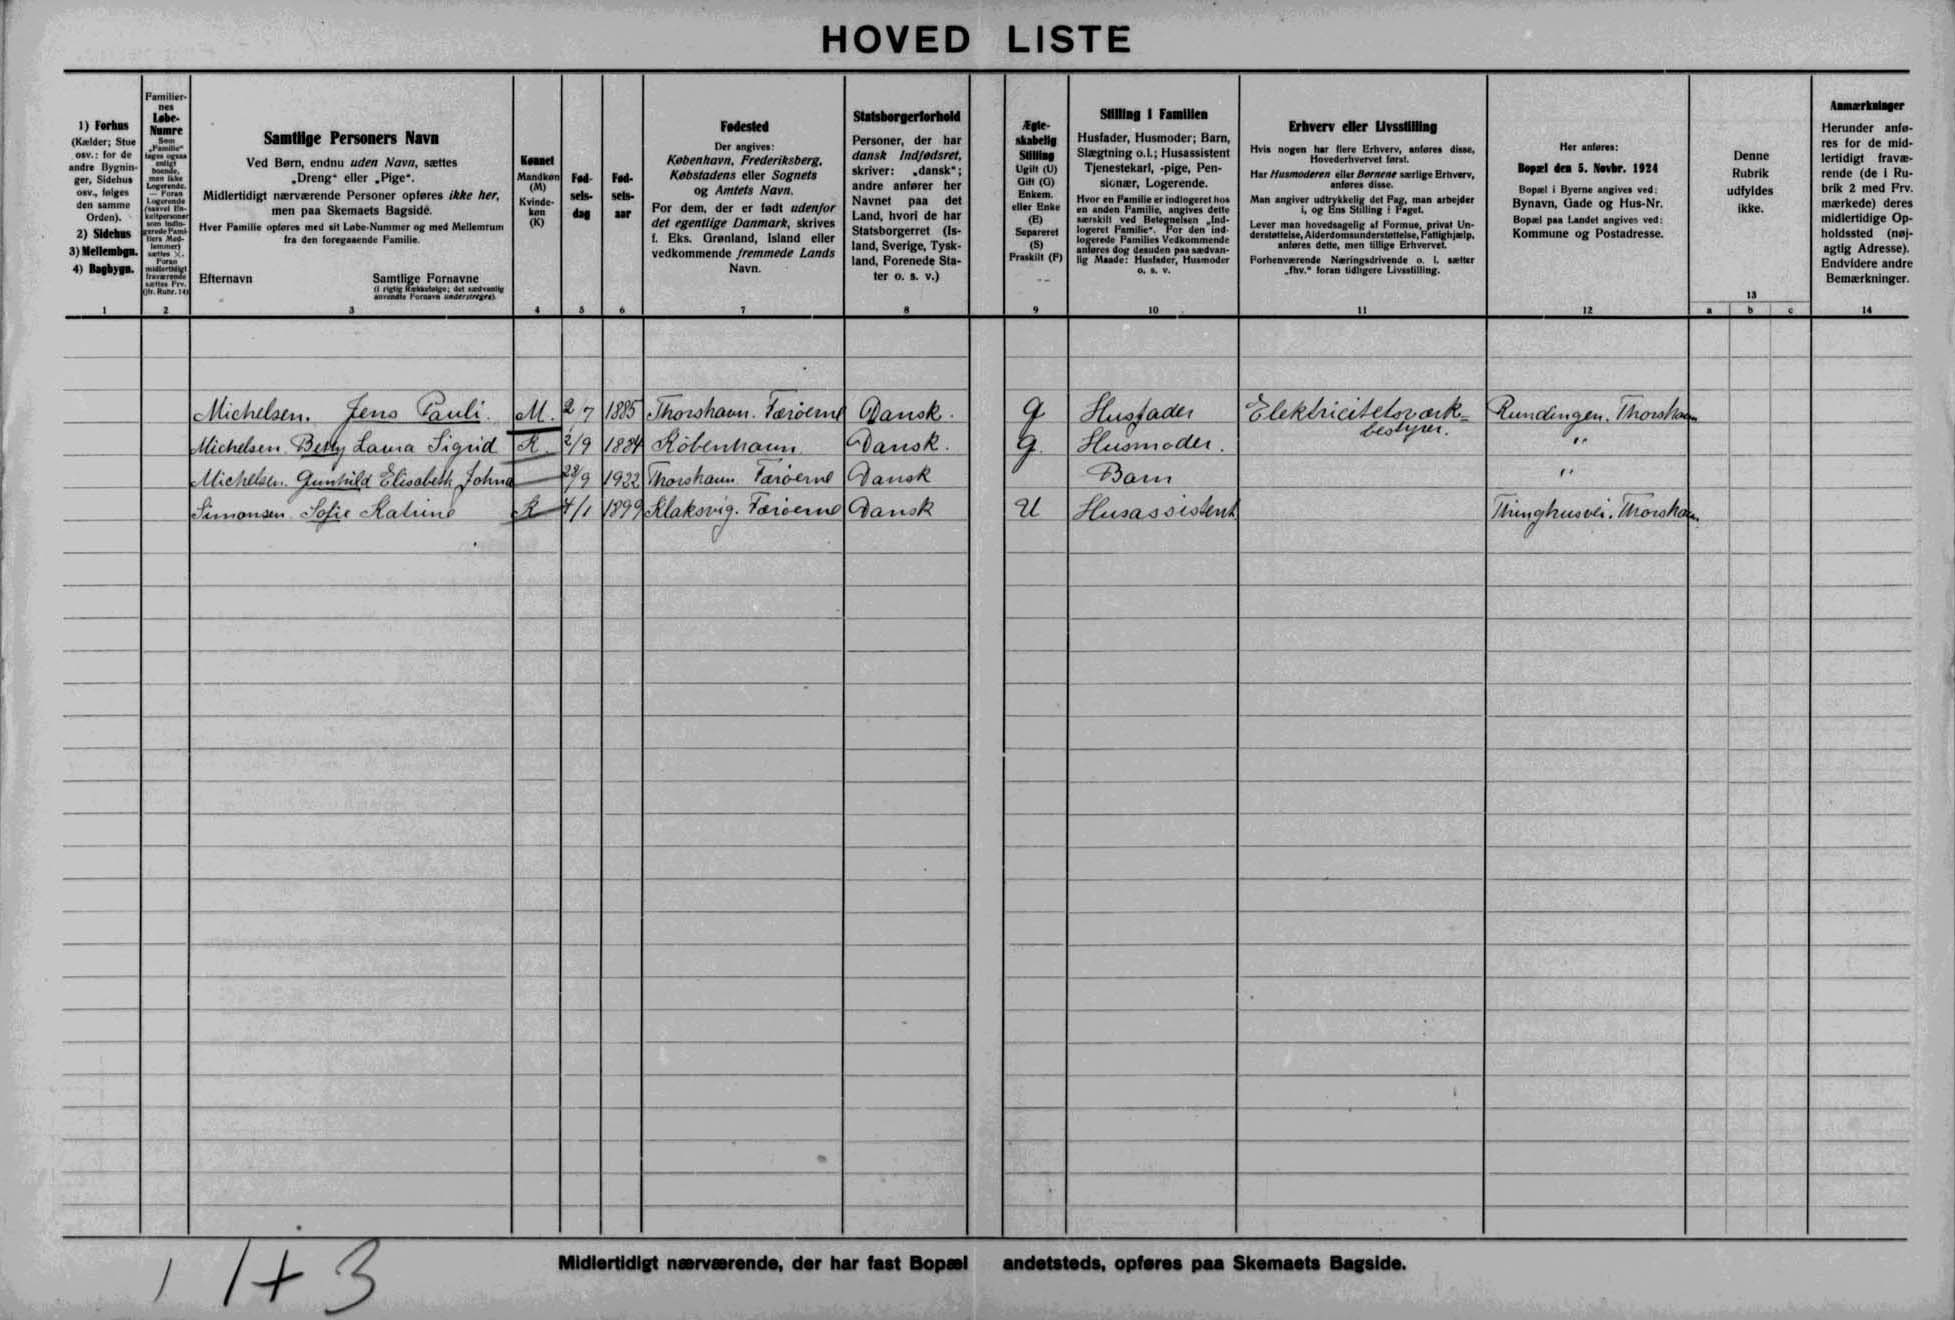 HOVED LISTE
1) Forhus
(Kælder; Stue
osv.: for de
andre Bygnin-
ger, Sidehus
osv., følges
den samme
Orden).
2) Sidehus
3) Mellembgn.
4) Bagbygn.
1
Familier-
nes
Løbe-
Numre
Som
„Familie“
tages ogsaa
enligt
boende,
men ikke
Logerende.
— Foran
Logerende
(saavel En-
keltpersoner
som indlo-
gerede Fami-
liers Med-
lemmer)
sættes ×.
Foran
midlertidigt
fraværende
sættes Frv.
(jfr. Rubr. 14)
2
Samtlige Personers Navn
Ved Børn, endnu uden Navn, sættes
„Dreng“ eller „Pige“.
Midlertidigt nærværende Personer opføres ikke her,
men paa Skemaets Bagside.
Hver Familie opføres med sit Løbe-Nummer og med Mellemrum
fra den foregaaende Familie.
Efternavn
Samtlige Fornavne
(i rigtig Rækkefølge; det sædvanlig
anvendte Fornavn understreges).
3
Kønnet
Mandkøn
(M)
Kvinde-
køn
(K)
4
Fød-
sels-
dag
5
Fød-
sels-
aar
6
Fødested
Der angives:
København, Frederiksberg,
Købstadens eller Sognets
og Amtets Navn.
For dem, der er født udenfor
det egentlige Danmark, skrives
f. Eks. Grønland, Island eller
vedkommende fremmede Lands
Navn.
7
Statsborgerforhold
Personer, der har
dansk Indfødsret,
skriver: „dansk“;
andre anfører her
Navnet paa det
Land, hvori de har
Statsborgerret (Is-
land, Sverige, Tysk-
land, Forenede Sta-
ter o. s. v.)
8
Ægte-
skabelig
Stilling
Ugift (U)
Gift (G)
Enkem.
eller Enke
(E)
Separeret
(S)
Fraskilt (F)
9
Stilling i Familien
Husfader, Husmoder; Barn,
Slægtning o.l.; Husassistent
Tjenestekarl, -pige, Pen-
sionær, Logerende.
Hvor en Familie er indlogeret hos
en anden Familie, angives dette
særskilt ved Betegnelsen „Ind-
logeret Familie“. For den ind-
logerede Families Vedkommende
anføres dog desuden paa sædvan-
lig Maade: Husfader, Husmoder
o. s. v.
10
Erhverv eller Livsstilling
Hvis nogen har flere Erhverv, anføres disse,
Hovederhvervet først.
Har Husmoderen eller Børnene særlige Erhverv,
anføres disse.
Man angiver udtrykkelig det Fag, man arbejder
i, og Ens Stilling i Faget.
Lever man hovedsagelig af Formue, privat Un-
derstøttelse, Alderdomsunderstøttelse, Fattighjælp,
anføres dette, men tillige Erhvervet.
Forhenværende Næringsdrivende o. l. sætter
„fhv.“ foran tidligere Livsstilling.
11
Her anføres:
Bopæl den 5. Novbr. 1924
Bopæl i Byerne angives ved:
Bynavn, Gade og Hus-Nr.
Bopæl paa Landet angives ved:
Kommune og Postadresse.
12
Denne
Rubrik
udfyldes
ikke.
13
a b c
Anmærkninger
Herunder anfø-
res for de mid-
lertidigt fravæ-
rende (de i Ru-
brik 2 med Frv.
mærkede) deres
midlertidige Op-
holdssted (nøj-
agtig Adresse).
Endvidere andre
Bemærkninger.
14
Michelsen. Jens Pauli. M. 2/7 1885 Thorshavn. Færøerne Dansk. G Husfader Elektricitetsværk= Rundingen. Thorshavn
bestyrer.
Michelsen Betty Laura Sigrid K. 2/9 1884 København Dansk. G. Husmoder. "
Michelsen. Gunhild Elisabeth Johna 28/9 1922 Thorshavn Færøerne Dansk Barn "
Simonsen. Sofie Katrine K 4/1 1899 Klaksvig. Færøerne Dansk U Husassistent Thinghusvei. Thorshavn.
Midlertidigt nærværende, der har fast Bopæl andetsteds, opføres paa Skemaets Bagside.
1 1+3